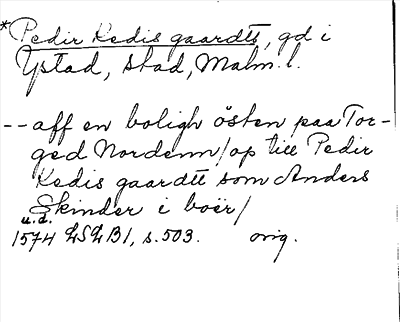 *Pedir Kedis gaardtt, gd i
Ystad, stad, Malm. l.
-- aff en boligh östen paa Tor-
ged Nordenn/op till Pedir
Kedis gaardtt som Anders
Skinder i boër/
u.d.
1574 LSLB1, s. 503. orig.